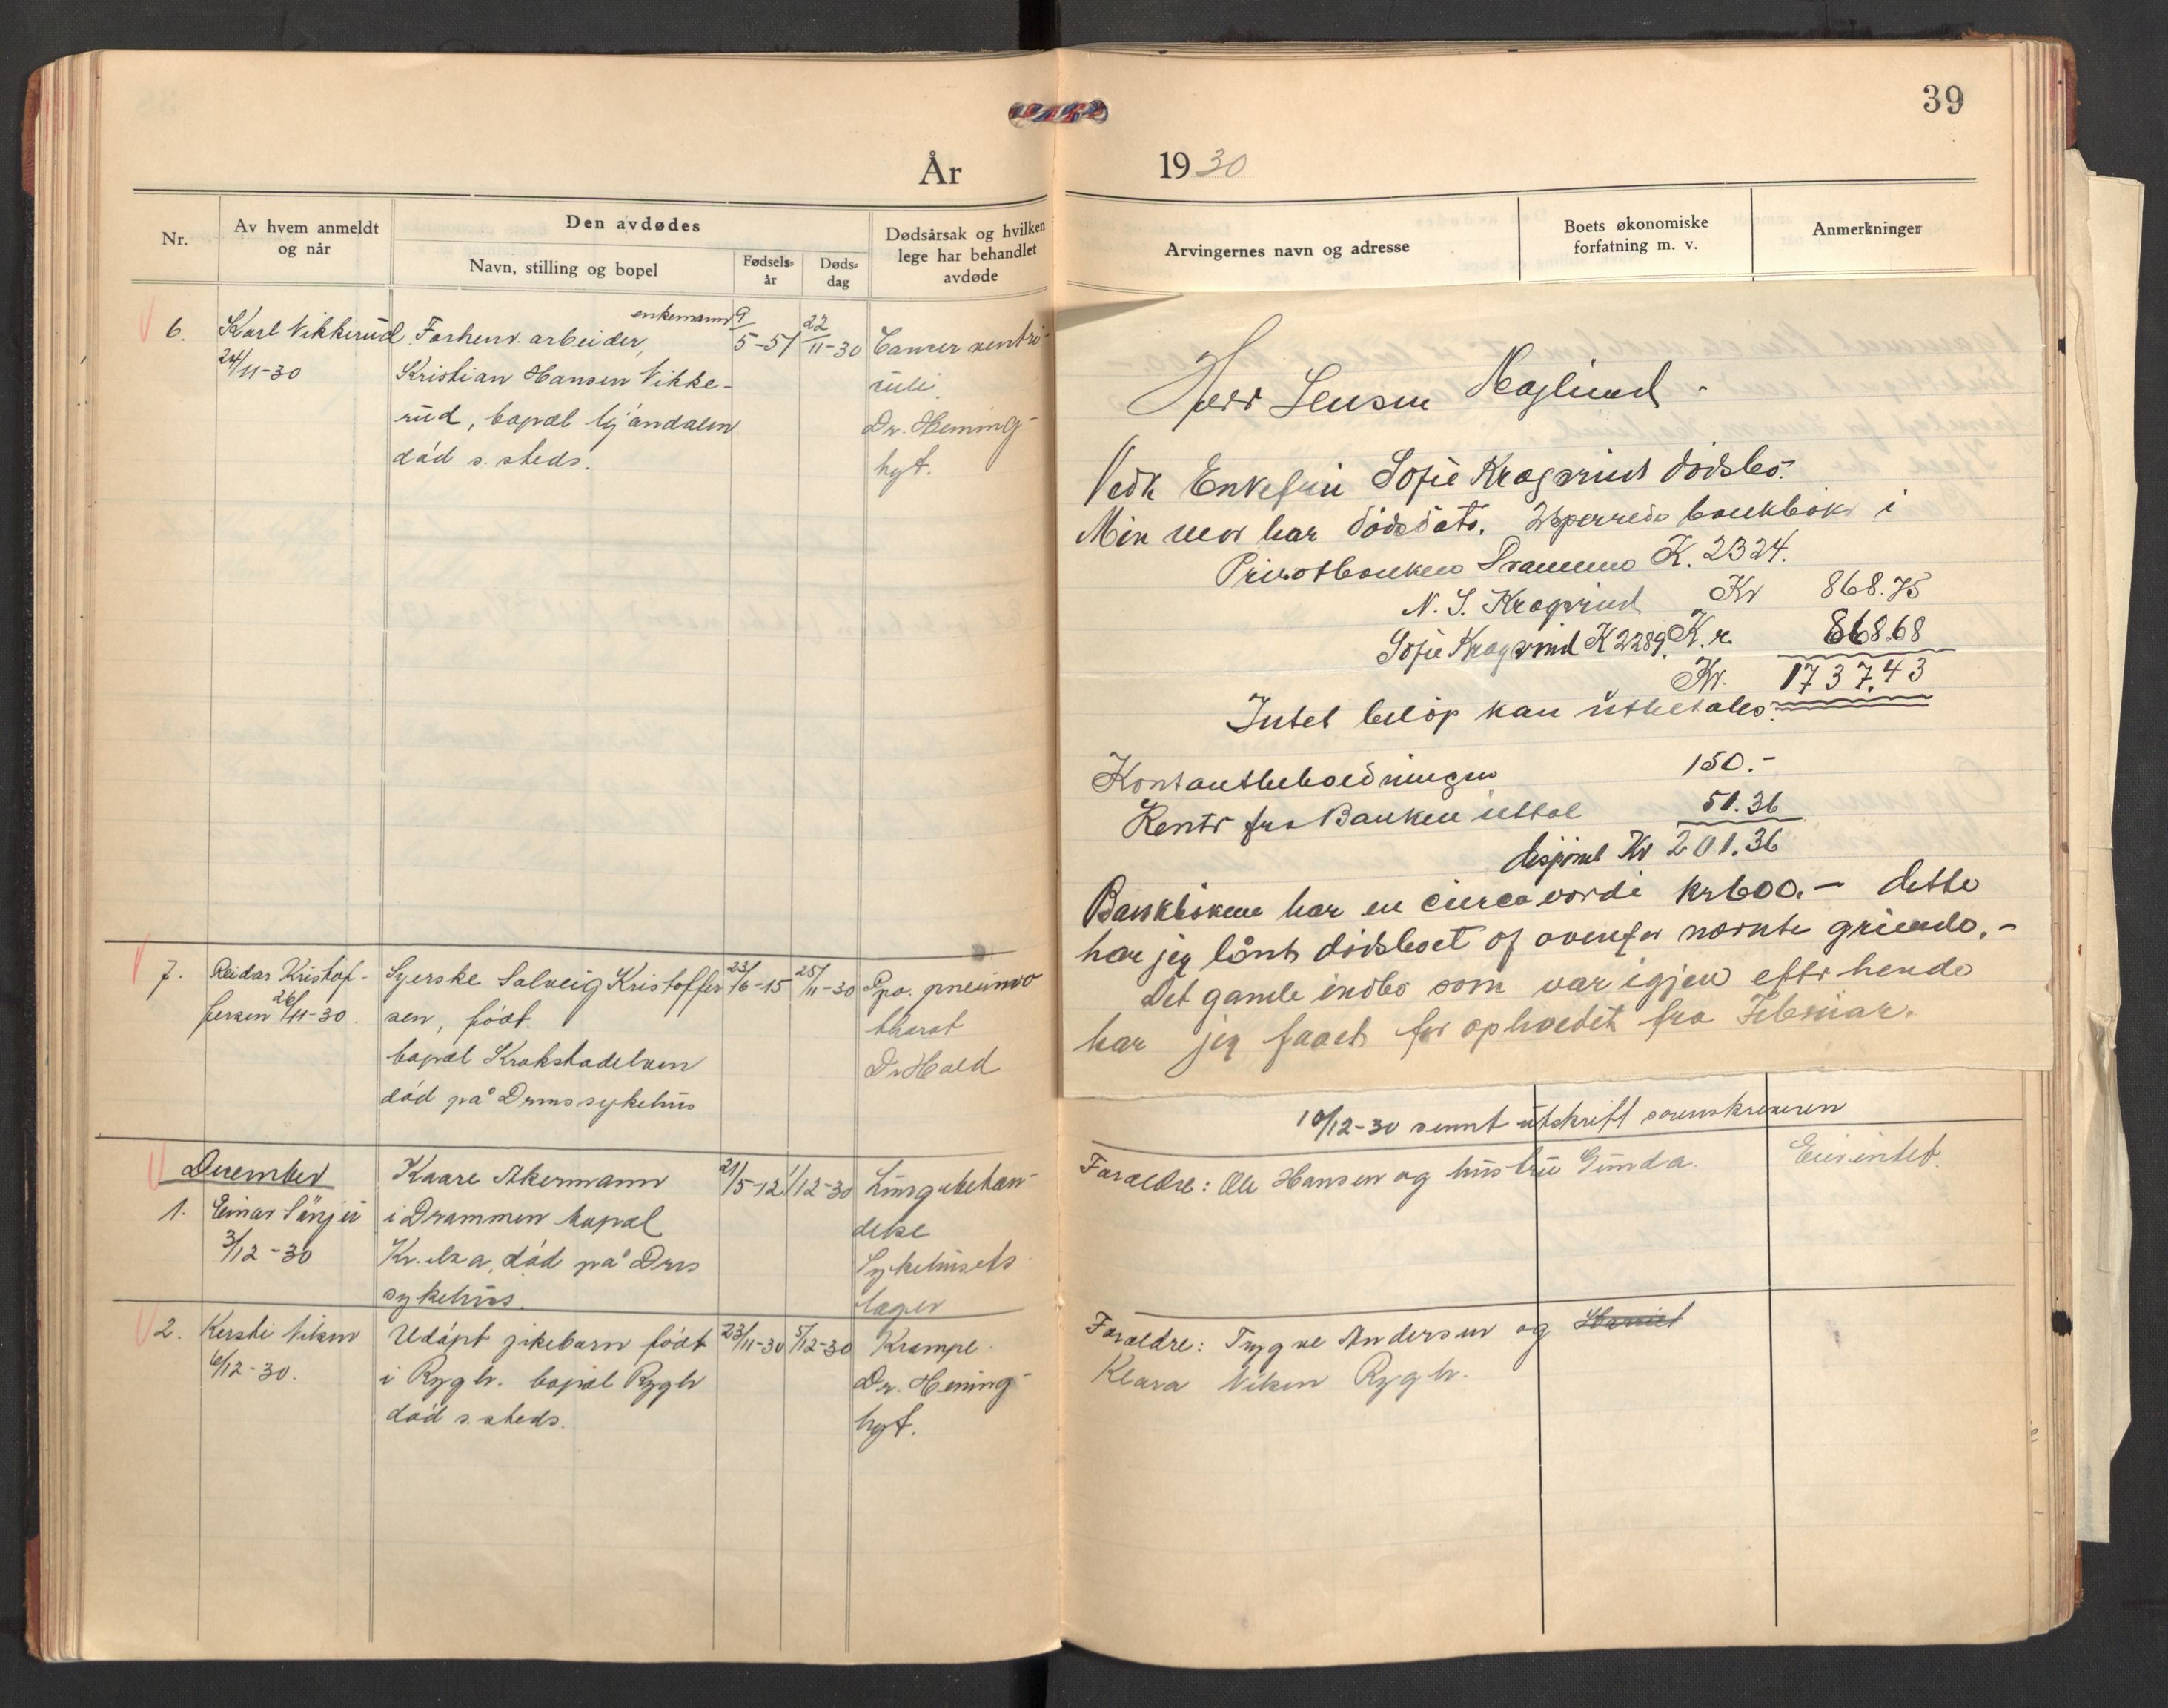 39
År 1930
Nr.
Av hvem anmeldt
og når
Den avdødes
Navn, stilling og bopel
Fødsels-
år
Døds-
dag
Dødsårsak og hvilken
lege har behandlet
avdøde
Arvingernes navn og adresse
Boets økonomiske
forfatning m. v.
Anmerkninger
6.
Karl Vikkerud
24/11-30
enkemann
Forhenv. arbeider,
Kristian Hansen Vikke-
rud, bopæl Mjøndalen
død s. steds.
9/5-51
22/11-30
Cancer ventri-
culi.
Dr. Hening-
7.
Reidar Kristof-
fersen 26/11-30.
Syerske Solveig Kristoffer
sen, født.
bopæl Krokstadelven
død på Drms sykehus
23/6-15
25/11-30
Spo. pneumo
thorat
Dr Hald
December
1. Einar
3/12-30
Kaare Akermann
i Drammen bopæl
død på Drs
sykehus.
21/5-12
1/12-30
Lungebetæn-
delse
Sykehusets
læger
2. Kersti Viken
6/12-30.
Udøpt pikebarn født
i Rygh. bopæl Rygh
død s. steds.
23/11-30
5/12-30
Krampe.
Dr. Hening-
Herr Lensm Haglund.
Vedk Enkefru Sofie Kragsrud dødsbo.
Min mor har dødsdato. 2 sperrede bankbøker i
Privatbanken Drammen K. 2324.
N. S. Kragsrud Kr 868.75
Sofie Kragsrud K 2289. Kr. 868.68
Kr. 1737.43
Intet beløp kan utbetales.
Kontantbeholdningen 150.-
Rente fra Banken uttat 51.36
Kr 201.36
Bankbøkene har en circa værdi kr 600.- dette
har jeg lånt dødsboet of ovenfor nævnte
Det gamle indbo som var igjen efter hende
har jeg faaet for opholdet fra Februar.
10/12-30 sennt utskrift sorenskriveren
Foraeldre: Ole Hansen og hustru Gunda.
Eier intet.
Foraeldre: Trygve Andersen og
Klara Viken Rygh.